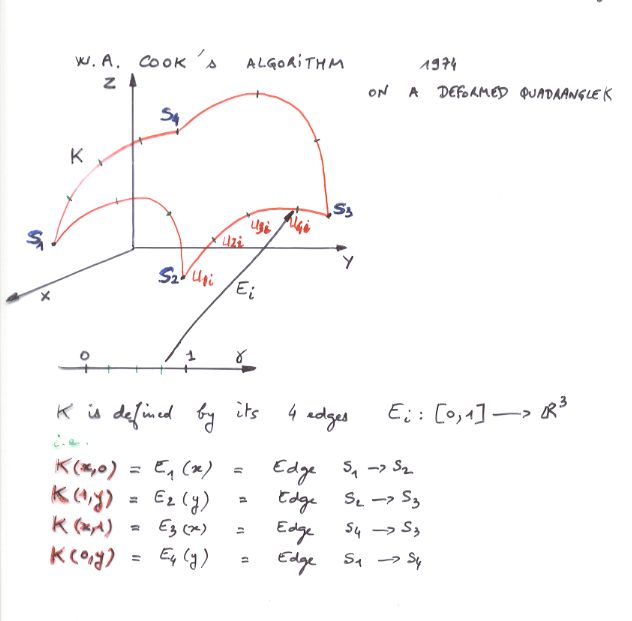 W. A. COOK'S ALGORITHM 1974
ON A DEFORMED QUADRANGLE K
Z
S4
K
S3
S1
u3i u4i
u2i
Y
S2 u1i
Ei
X
0 1 γ
K is defined by its 4 edges Ei : [0,1] → ℝ³
i.e.
K(x,0) = E1(x) = Edge S1 → S2
K(1,y) = E2(y) = Edge S2 → S3
K(x,1) = E3(x) = Edge S4 → S3
K(0,y) = E4(y) = Edge S1 → S4